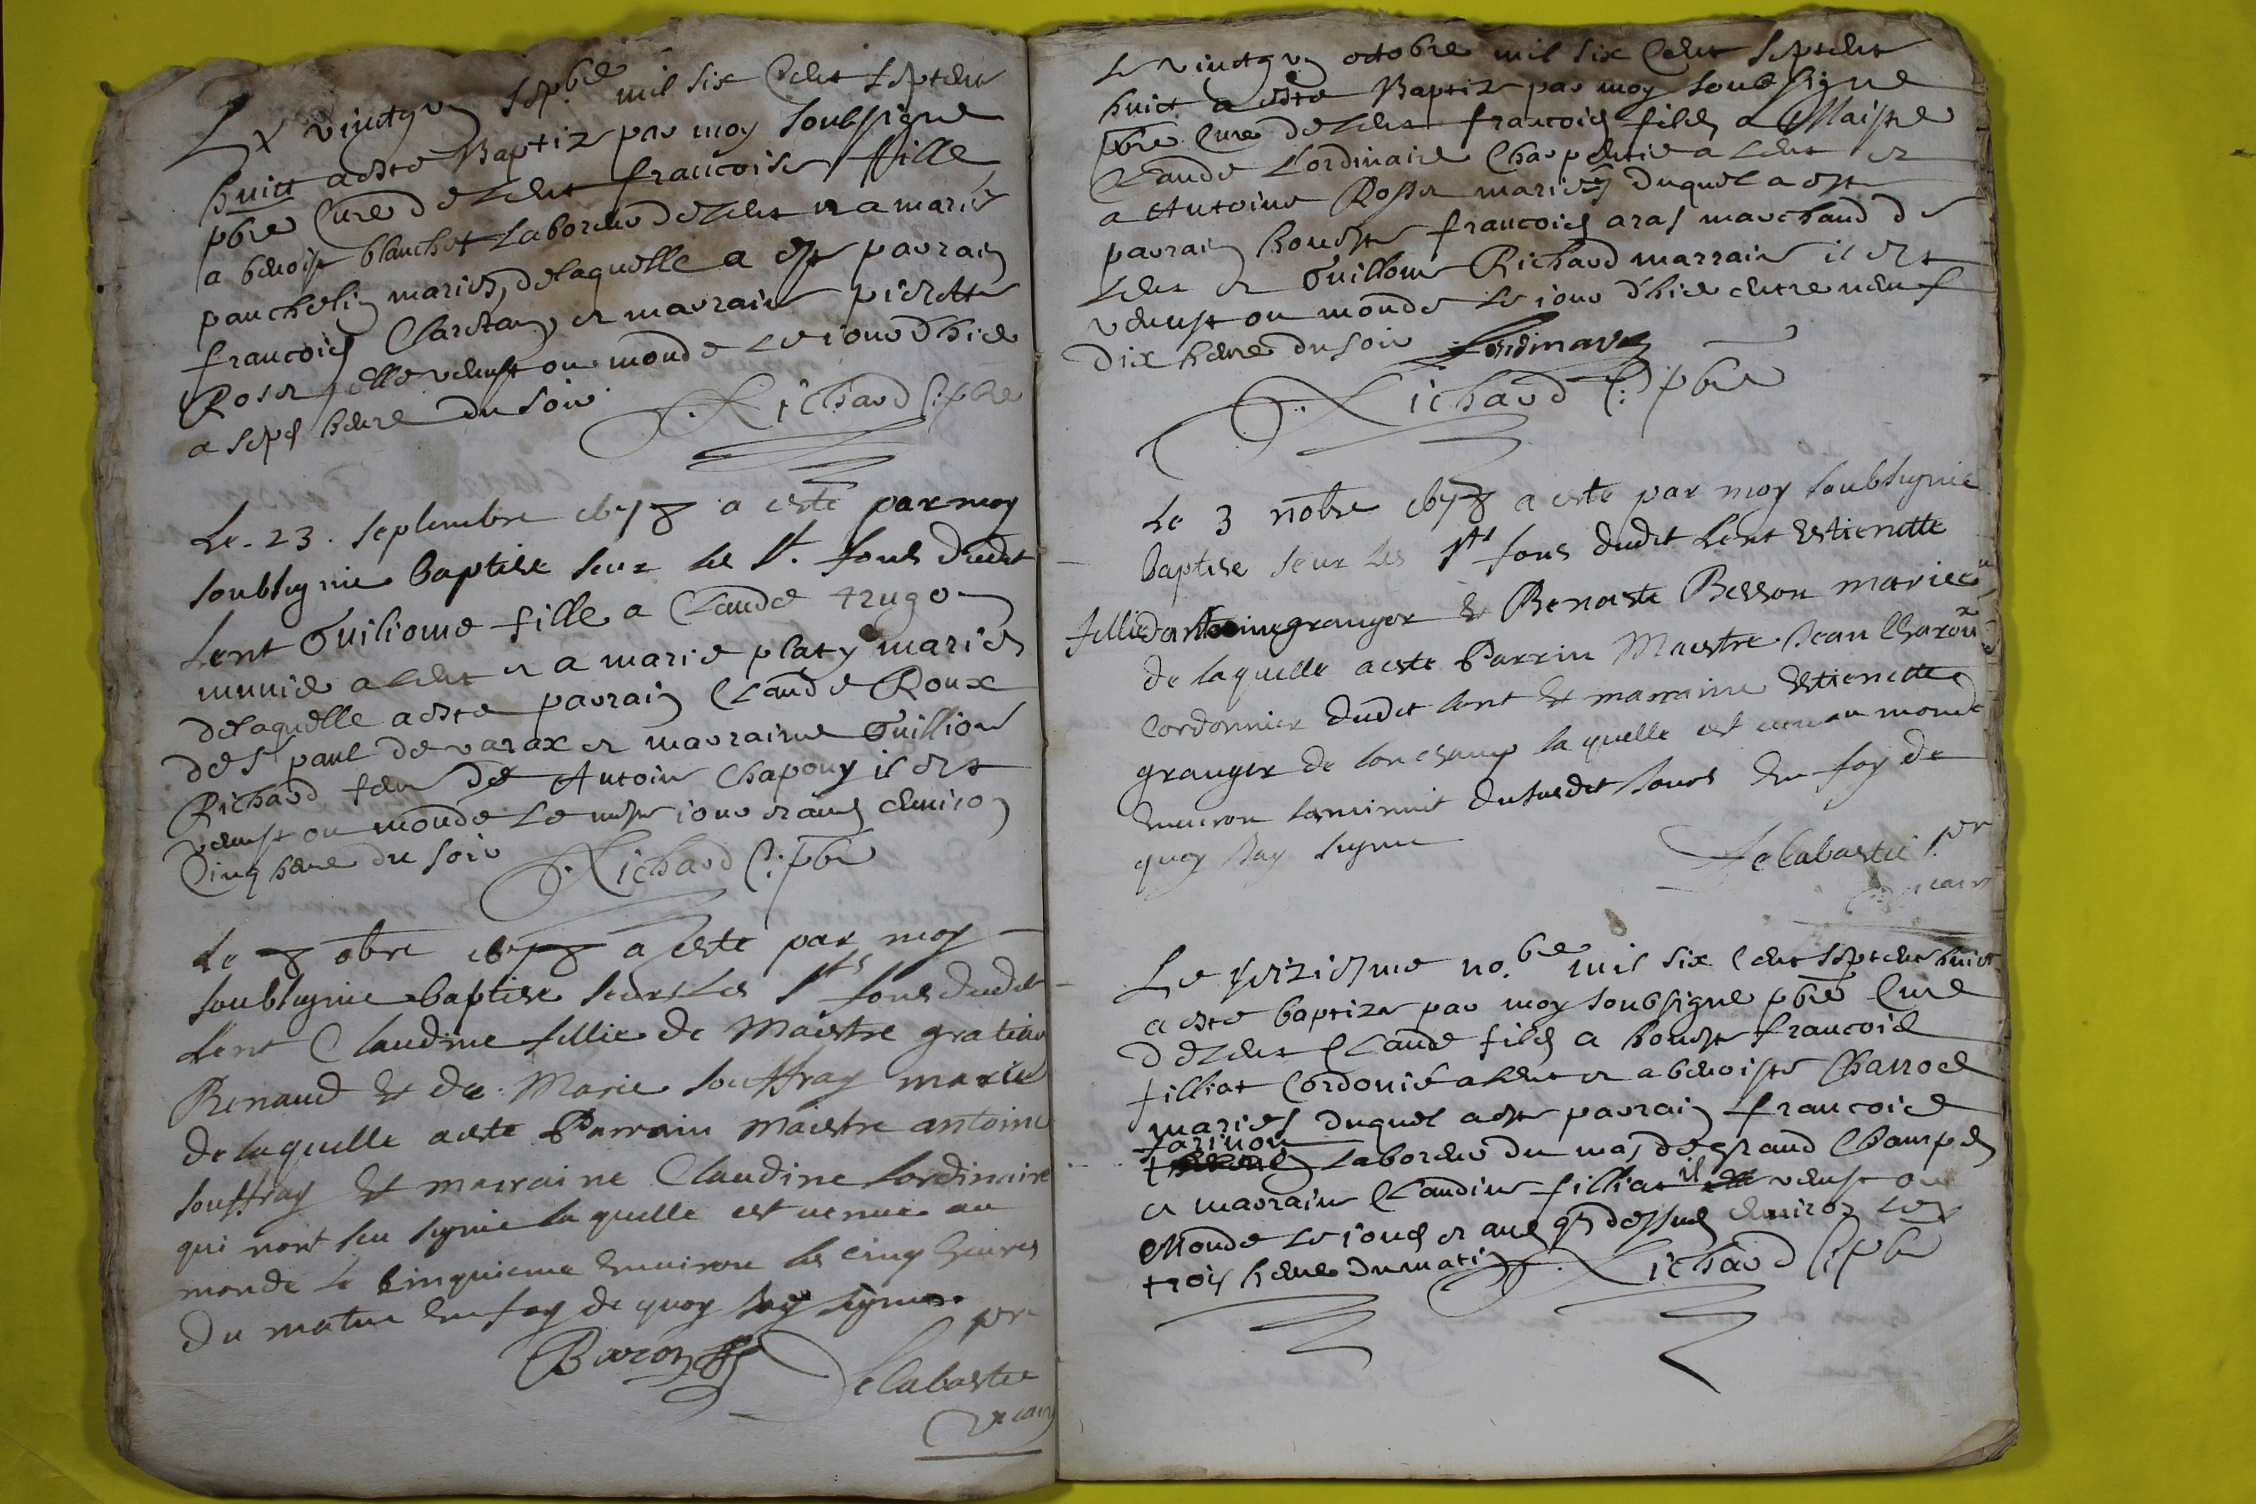 Le vingt sepbre mil six Cent septente
huict a esté Baptizé par moy soubsigne
pbre Curé de Lent francoise fille
a benoist blanchet Laboreur de Lent et a marie
panchet mariés, de laquelle a esté parrain
francois et marraine pierette
Roset elle venuse ou monde Le iour dhier
a sept heure du soir Richard C: pbre
Le .23. septembre 1678 a esté par moy
soubsignie baptise seur les St. fons dudit
Lent Guiliome fille a Claude
munier a Lent et a marie platy mariés
de laquelle a este parrain Claude Roux
de St paul de varax et marraine Guillion
Richard feu de Antoine Chapouy il est
venust ou monde Le iour et an environ
Cinq heure du soir Richard C: pbre
Le 8 obre 1678 a este par moy
soubsignie baptise seur Les Sts fons dudit
Lent Claudine fillie de Maistre gratian
Renaud & de Marie souffray maries
de laquelle a este Parrain Maistre antoine
souffray & marraine Claudine Lordinaire
qui nont seu signie la quelle est venue au
monde le cinquieme environ les cinq heures
du matin En foy de quoy Jay signe
Delabastie pr
vicair
Le vingt octobre mil six Cent septente
huict a esté Baptizé par moy soubsigne
pbre Curé de Lent francois filz a Maistre
Claude Lordinaire Charpentie a Lent et
a Antoine Rosset mariés duquel a esté
parrain honeste francois aras marchand de
Lent et Guillome Richard marraine il est
venust ou monde Le iour dhier entre neuf
dix heure du soir Lordinaire
Richard C: pbre
Le 3 nobre 1678 a este par moy soubsignie
baptise seur Les Sts fons dudit Lent Estienette
fillie dantoine granger & Benoiste Besson maries
de laquelle a este Parrin Maistre Jean
Cordonnier dudit Lent & marraine Estienette
granger de Lonchamp la quelle est venu au monde
environ la minuit du susdit Jours En foy de
quoy Jay signe
Delabastie pr
vicair
Le no.bre mil six Cent septente huict
a esté baptizé par moy soubsigne pbre Curé
de Lent Claude filz a honeste francois
filliat Cordonié a Lent et a benoiste
mariés duquel a esté parrain francois
farinon
Laboreur du mas de grand Champs
et marraine Claudine filliat il venust ou
Monde Le iour et an q dessus environ Les
trois heure du matin Richard C: pbre